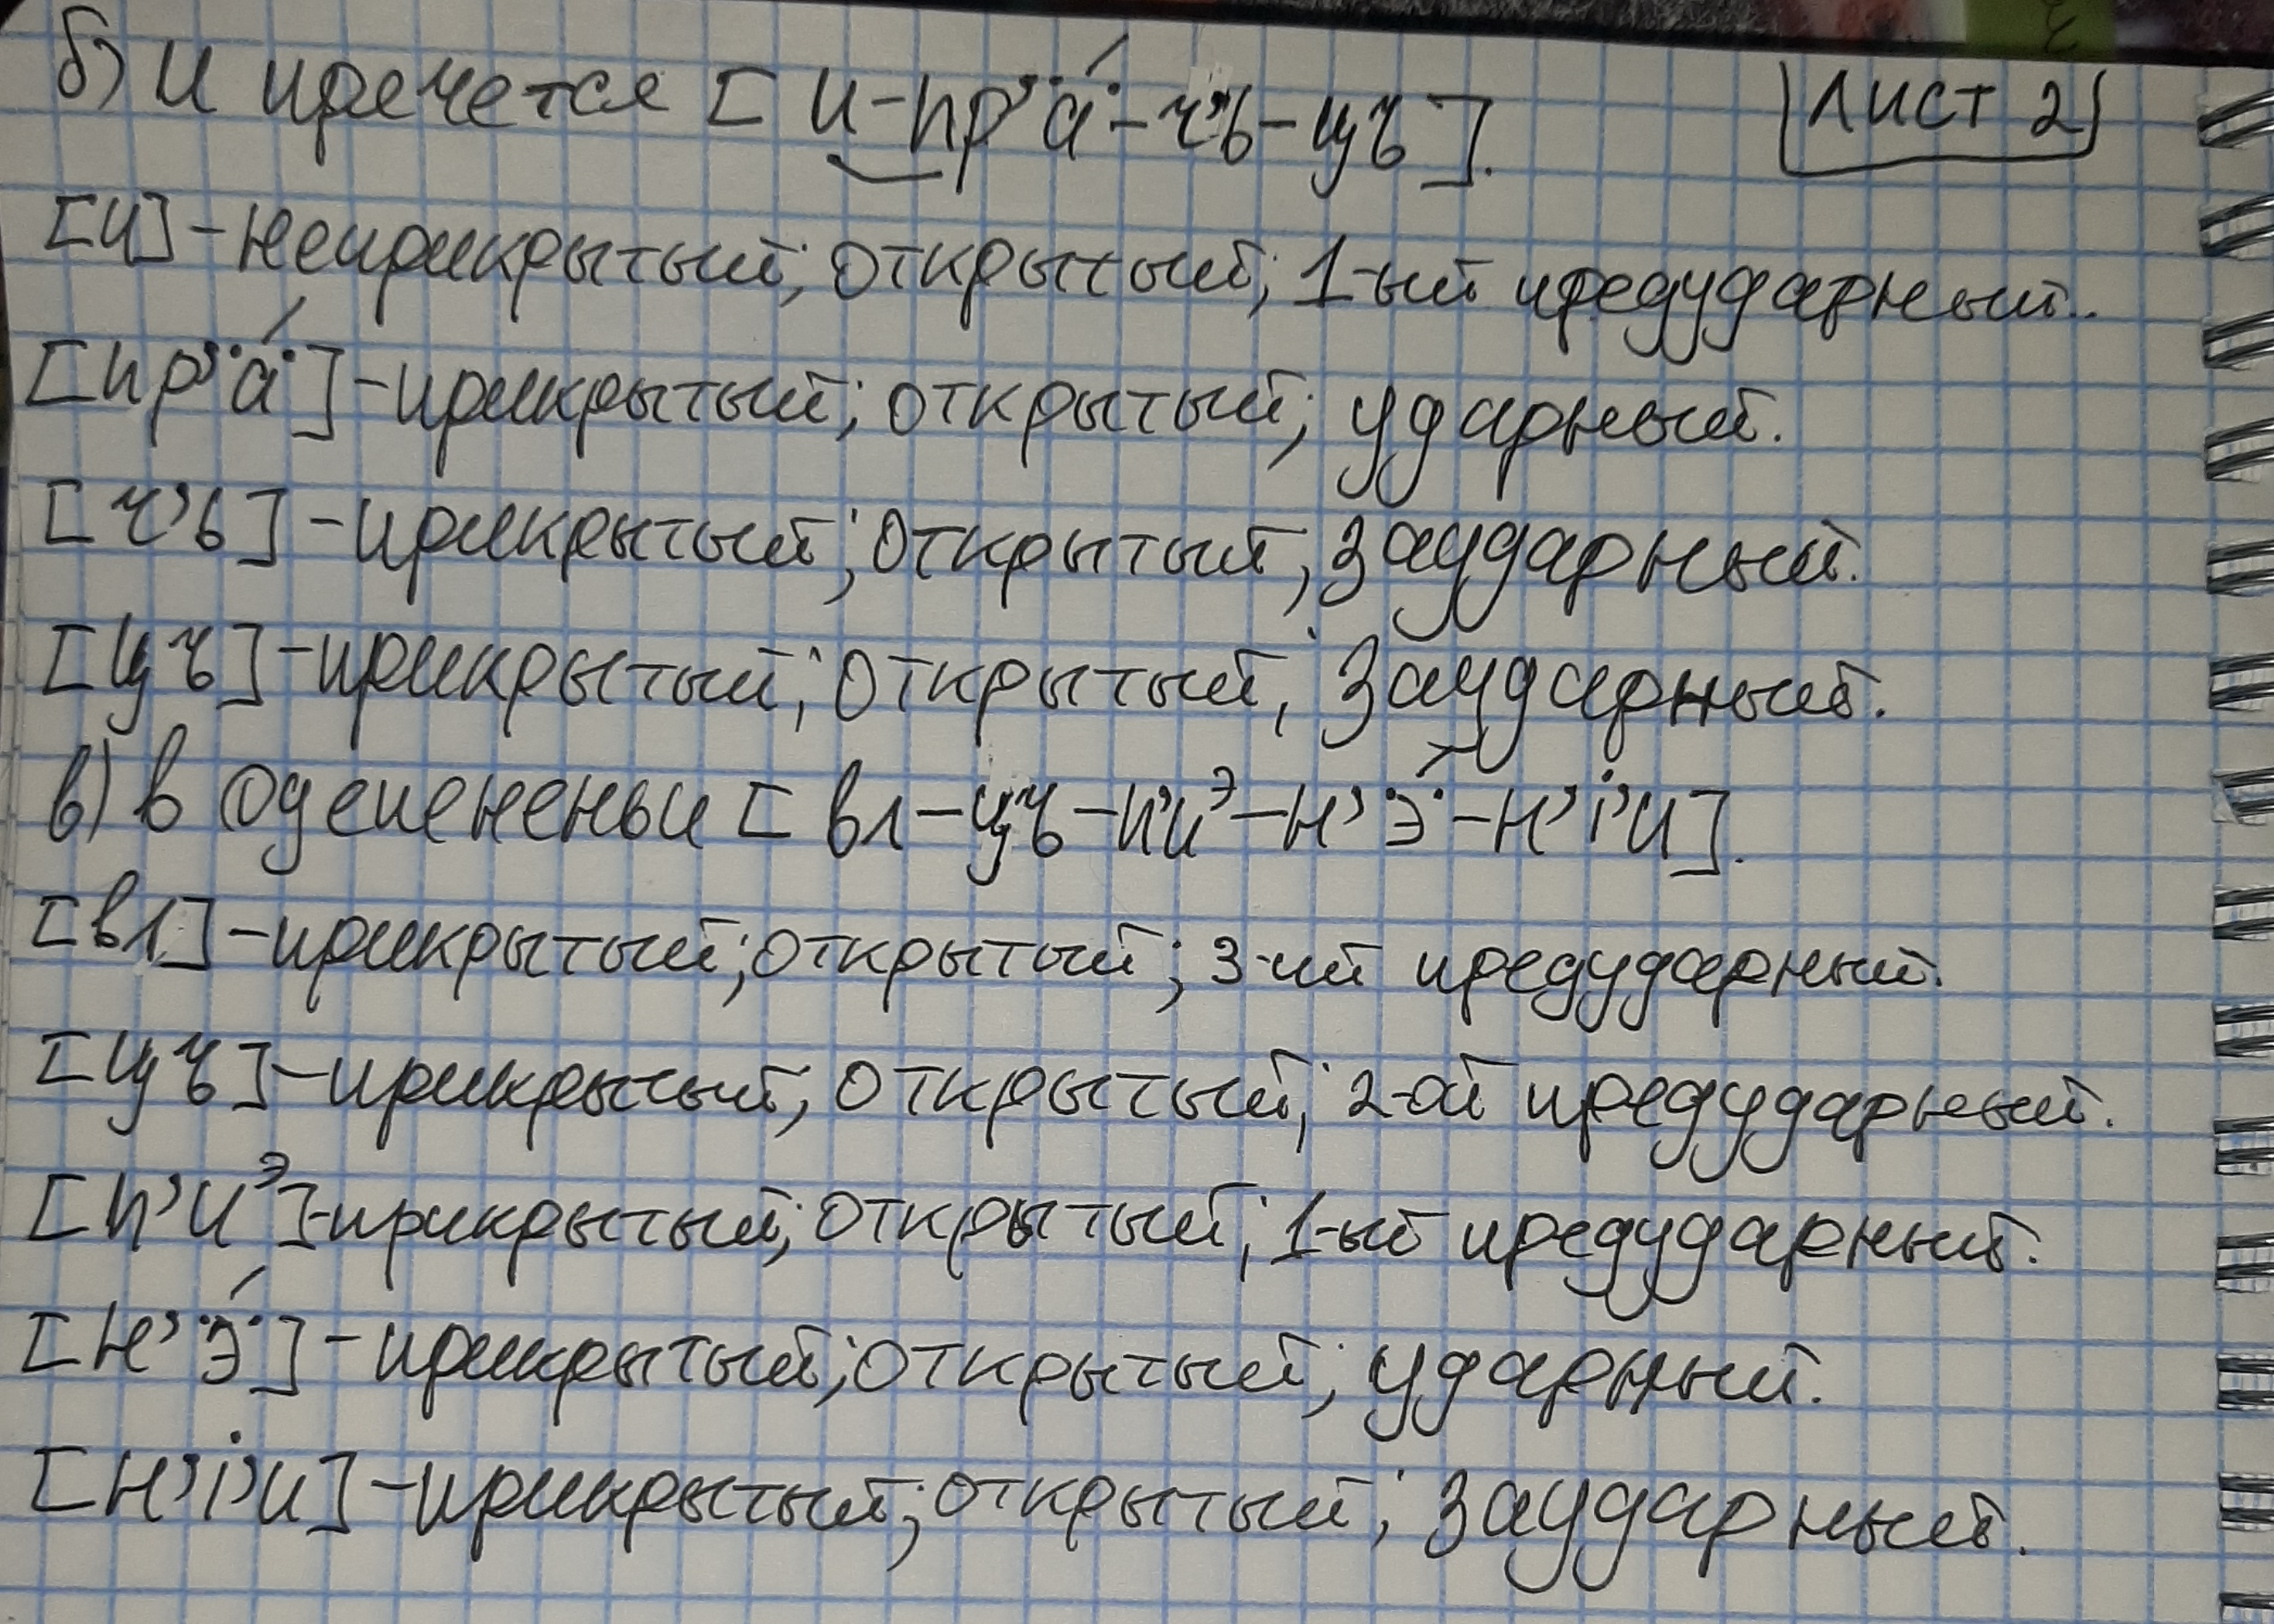 б) И прячется [и-пр’а́-ч’ь-цъ]. Лист 2
[и] - неприкрытый; открытый; 1-ый предударный.
[пр’а́] - прикрытый; открытый; ударный.
[ч’ь] - прикрытый; открытый; заударный.
[цъ] - прикрытый; открытый; заударный.
в) в оцепененьи [вʌ-цъ-п’иэ-н’э́-н’j’и].
[вʌ] - прикрытый; открытый; 3-ий предударный.
[цъ] - прикрытый; открытый; 2-ой предударный.
[п’иэ] - прикрытый; открытый; 1-ый предударный.
[н’э́] - прикрытый; открытый; ударный.
[н’j’и] - прикрытый; открытый; заударный.